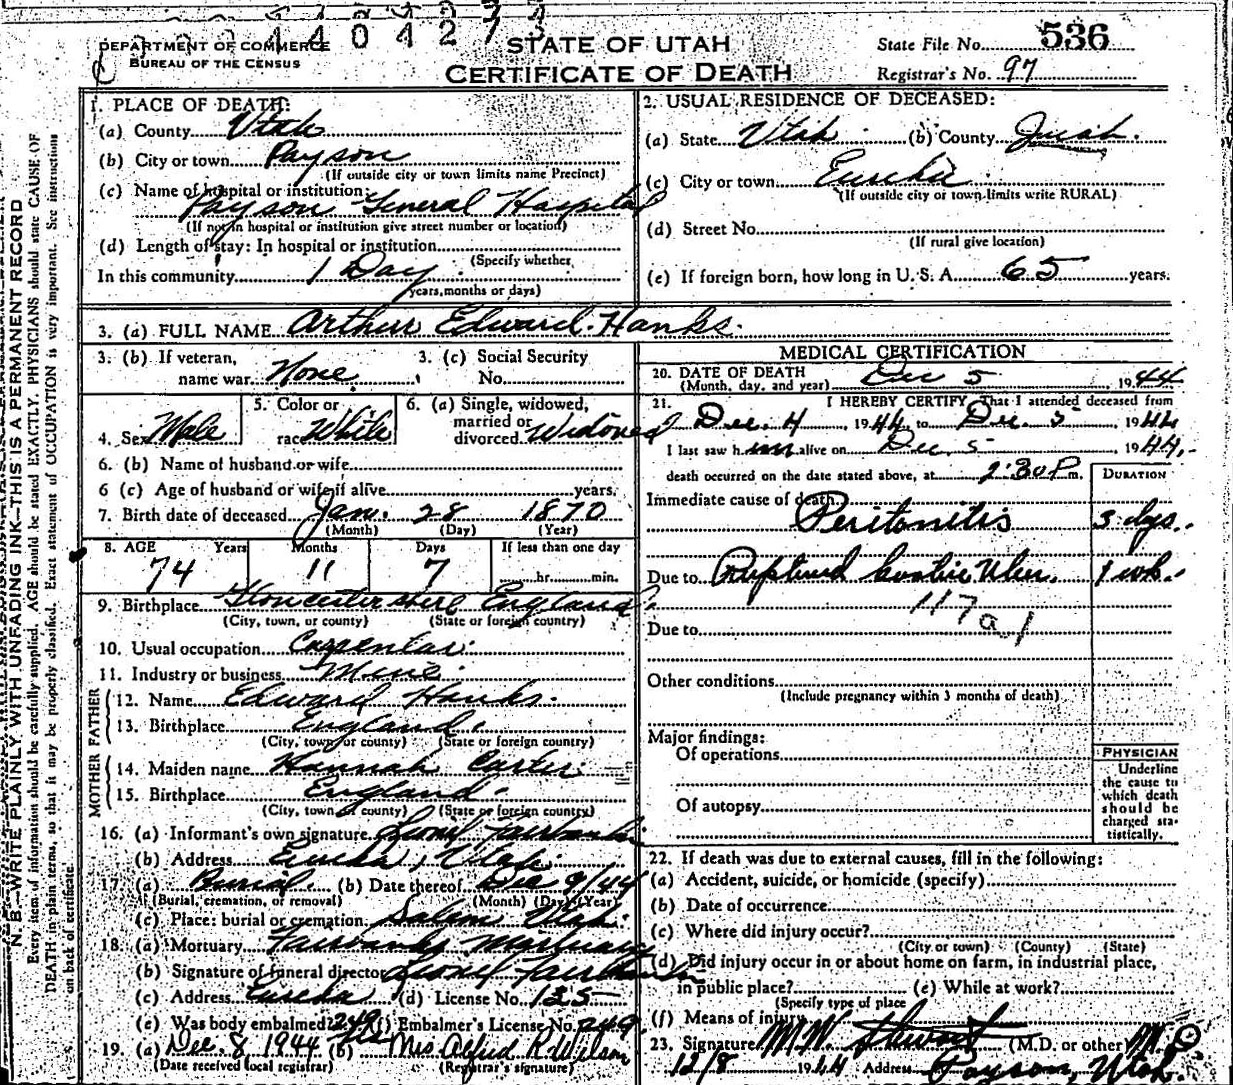 DEPARTMENT OF COMMERCE
BUREAU OF THE CENSUS
440427
STATE OF UTAH
CERTIFICATE OF DEATH
State File No. 536
Registrar's No. 97
N. B.—WRITE PLAINLY WITH UNFADING INK—THIS IS A PERMANENT RECORD
Every item of information should be carefully supplied. AGE should be stated EXACTLY. PHYSICIANS should state CAUSE OF
DEATH in plain terms, so that it may be properly classified. Exact statement of OCCUPATION is very important. See instructions
on back of certificate.
1. PLACE OF DEATH:
(a) County Utah
(b) City or town Payson
(If outside city or town limits name Precinct)
(c) Name of hospital or institution:
Payson General Hospital
(If not in hospital or institution give street number or location)
(d) Length of stay: In hospital or institution
(Specify whether
In this community 1 Day
years, months or days)
2. USUAL RESIDENCE OF DECEASED:
(a) State Utah (b) County Juab
(c) City or town Eureka
(If outside city or town limits write RURAL)
(d) Street No.
(If rural give location)
(e) If foreign born, how long in U. S. A. 65 years.
3. (a) FULL NAME Arthur Edward Hanks
3. (b) If veteran,
name war None
3. (c) Social Security
No.
4. Sex Male
5. Color or
race White
6. (a) Single, widowed,
married or
divorced Widowed
6. (b) Name of husband or wife
6 (c) Age of husband or wife if alive years.
7. Birth date of deceased Jan. 28 1870
(Month) (Day) (Year)
8. AGE Years Months Days If less than one day
74 11 7 hr. min.
9. Birthplace Gloucestershire England
(City, town, or county) (State or foreign country)
10. Usual occupation Carpenter
11. Industry or business Mine
FATHER
12. Name Edward Hanks
13. Birthplace England
(City, town or county) (State or foreign country)
MOTHER
14. Maiden name Hannah Carter
15. Birthplace England
(City, town or county) (State or foreign country)
16. (a) Informant's own signature Lionel Fairbanks
(b) Address Eureka, Utah
17. (a) Burial (b) Date thereof Dec 9/44
(Burial, cremation, or removal) (Month) (Day) (Year)
(c) Place: burial or cremation Salem Utah
18. (a) Mortuary Fairbanks Mortuary
(b) Signature of funeral director Lionel Fairbanks
(c) Address Eureka (d) License No. 135
(e) Was body embalmed? Yes (f) Embalmer's License No. 249
19. (a) Dec. 8, 1944 (b) Mrs Alfred R. Wilson
(Date received local registrar) (Registrar's signature)
MEDICAL CERTIFICATION
20. DATE OF DEATH
(Month, day, and year) Dec 5, 1944
21. I HEREBY CERTIFY, That I attended deceased from
Dec. 4, 1944, to Dec. 5, 1944
I last saw him alive on Dec 5 1944.
death occurred on the date stated above, at 2:30 P. m.
DURATION
Immediate cause of death
Peritonitis 3 dys.
Due to Ruptured Gastric Ulcer. 1 wk.
117a1
Due to
Other conditions
(Include pregnancy within 3 months of death)
Major findings:
Of operations
Of autopsy
PHYSICIAN
Underline
the cause to
which death
should be
charged sta-
tistically.
22. If death was due to external causes, fill in the following:
(a) Accident, suicide, or homicide (specify)
(b) Date of occurrence
(c) Where did injury occur?
(City or town) (County) (State)
(d) Did injury occur in or about home on farm, in industrial place,
in public place? (e) While at work?
(Specify type of place
(f) Means of injury
23. Signature M W Stewart (M.D. or other) M.D.
12/8 1944 Address Payson, Utah.